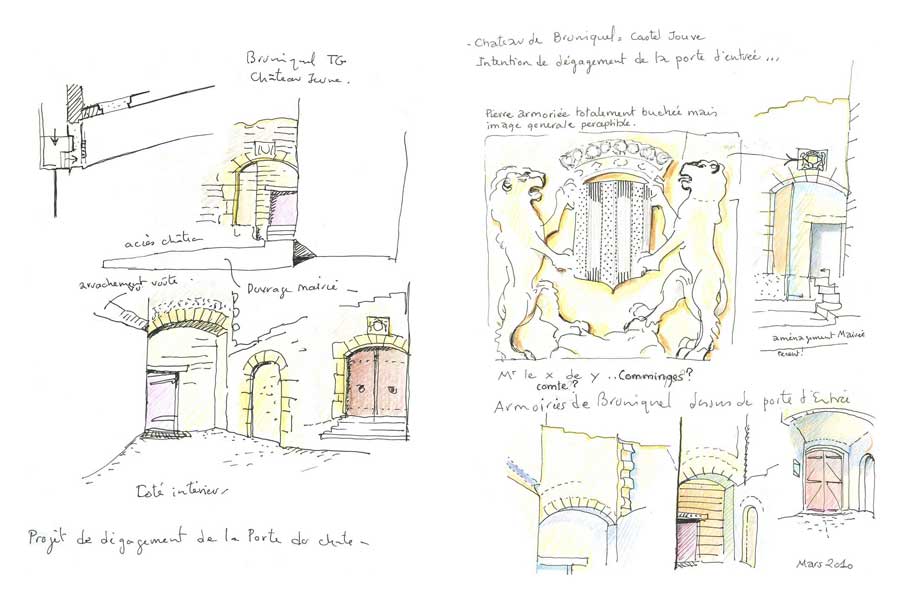 Bruniquel TG
Château Jeune.
accès châtea
arrachement voûte
Ouvrage mairie
Coté intérieur
Projet de dégagement de la Porte du chate
- Chateau de Bruniquel, Castel Jouve
Intention de dégagement de la porte d'entrée...
Pierre armoriée totalement buchée mais
image generale perceptible.
aménagement Mairie
recent!
Mr le x de y ..Comminges?
comte?
Armoiries de Bruniquel dessus de porte d'Entrée
Mars 2010